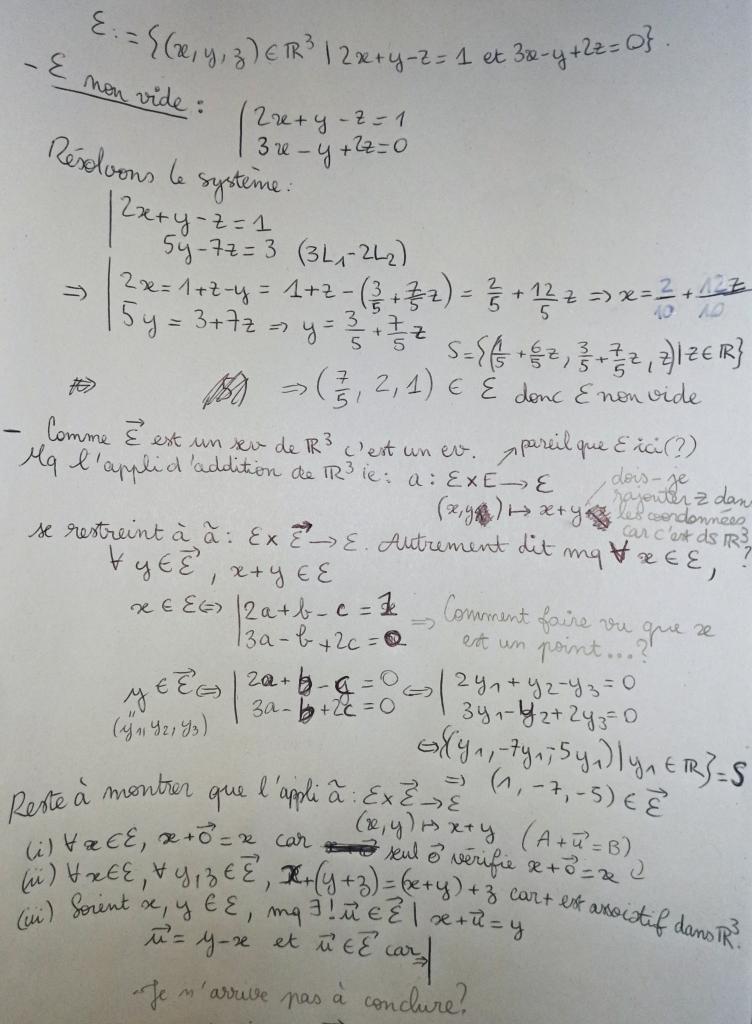 ℰ := {(x, y, z) ∈ ℝ³ | 2x+y-z = 1 et 3x-y+2z = 0}.
- ℰ non vide : | 2x + y - z = 1
| 3x - y + 2z = 0
Résolvons le système :
| 2x + y - z = 1
5y - 7z = 3 (3L₁-2L₂)
⇒ | 2x = 1+z-y = 1+z-(3/5 + 7/5 z) = 2/5 + 12/5 z ⇒ x = 2/10 + 12z/10
| 5y = 3+7z ⇒ y = 3/5 + 7/5 z
S = {(1/5 + 6/5 z, 3/5 + 7/5 z, z) | z ∈ ℝ}
⇒ (7/5, 2, 1) ∈ ℰ donc ℰ non vide
- Comme ℰ⃗ est un sev de ℝ³ c'est un ev. ↗ pareil que ℰ ici (?)
Mq l'appli d'addition de ℝ³ ie : a : ℰ×E → ℰ
(x,y) ↦ x+y
dois-je rajouter z dans les coordonnées car c'est ds ℝ³ ?
se restreint à ã : ℰ × ℰ⃗ → ℰ. Autrement dit mq ∀ x ∈ ℰ,
∀ y ∈ ℰ⃗, x+y ∈ ℰ
x ∈ ℰ ⇔ | 2a + b - c = 1
| 3a - b + 2c = 0 ⇒ Comment faire vu que x
est un point...?
y ∈ ℰ⃗ ⇔ | 2a + b - c = 0 ⇔ | 2y₁ + y₂ - y₃ = 0
(y₁, y₂, y₃) | 3a - b + 2c = 0 | 3y₁ - y₂ + 2y₃ = 0
⇔ {(y₁, -7y₁, -5y₁) | y₁ ∈ ℝ} = S
⇒ (1, -7, -5) ∈ ℰ⃗
Reste à montrer que l'appli ã : ℰ × ℰ⃗ → ℰ
(x, y) ↦ x+y (A + u⃗ = B)
(i) ∀ x ∈ ℰ, x + 0⃗ = x car seul 0⃗ vérifie x + 0⃗ = x
(ii) ∀ x ∈ ℰ, ∀ y, z ∈ ℰ⃗, x+(y+z) = (x+y)+z car + est assoistif dans ℝ³.
(iii) Soient x, y ∈ ℰ, mq ∃! u⃗ ∈ ℰ⃗ | x + u⃗ = y
u⃗ = y - x et u⃗ ∈ ℰ⃗ car ⇒ |
- Je n'arrive pas à conclure ?